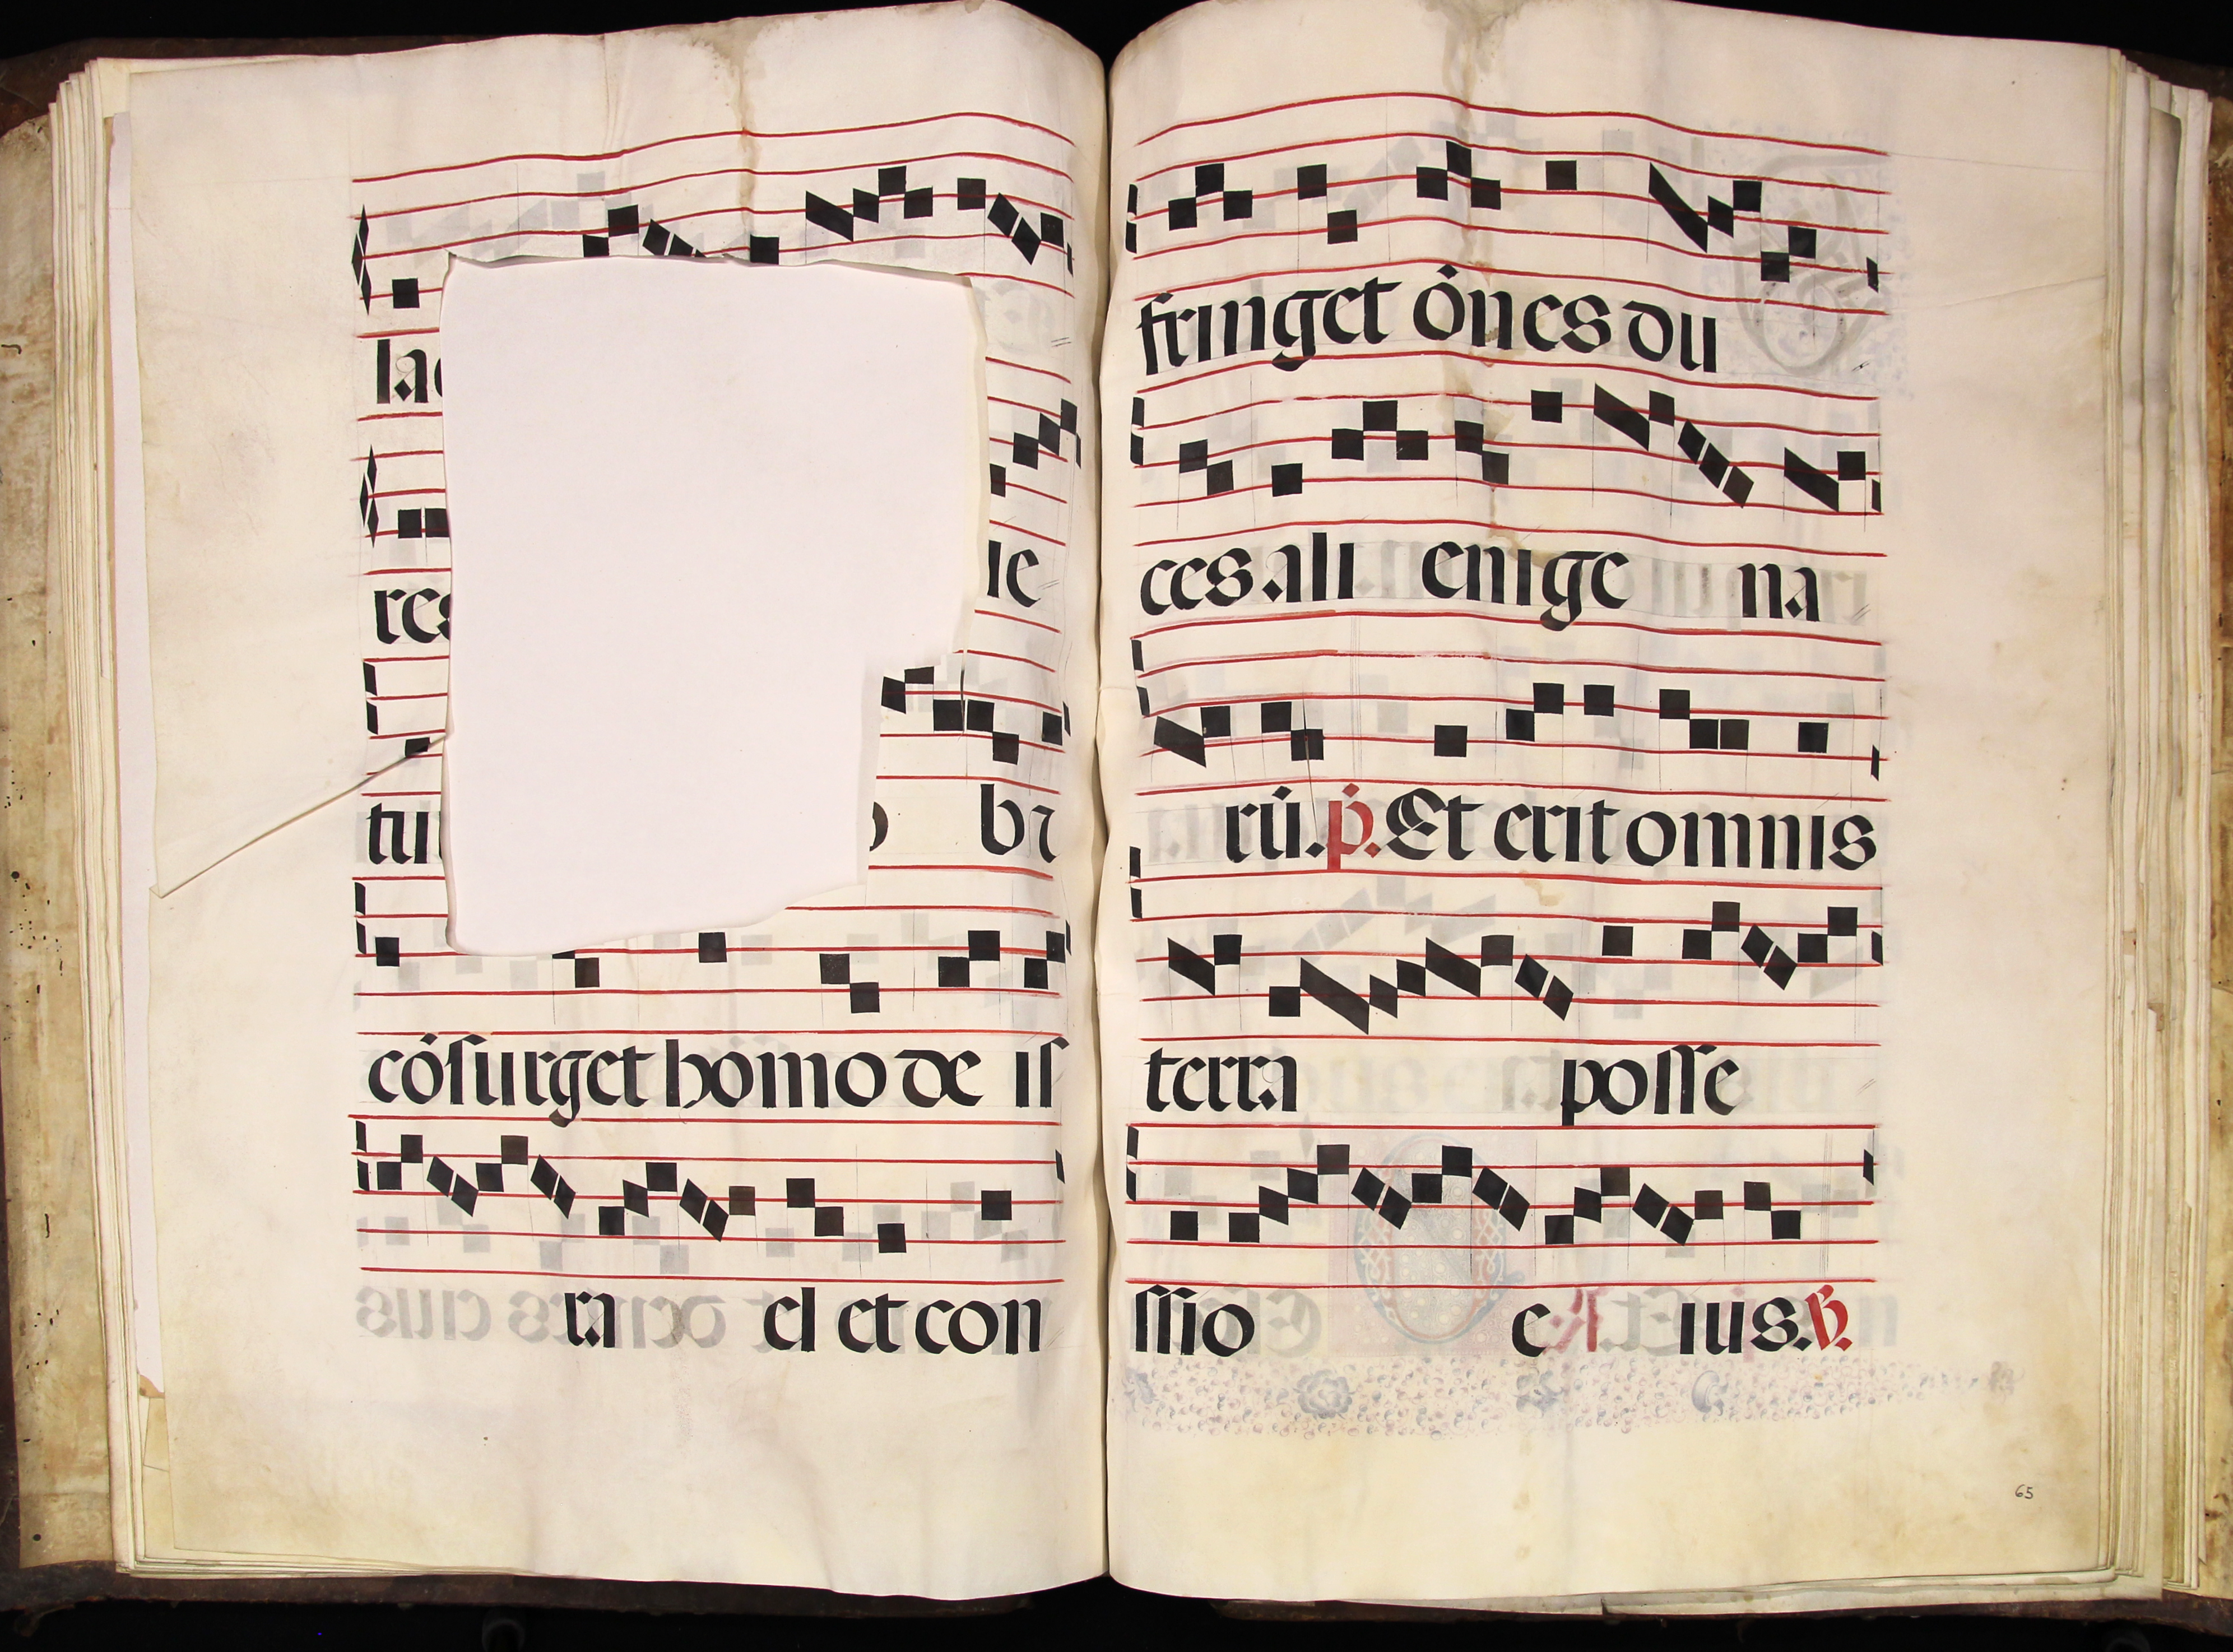 la
res le
tu bı
cósurget homo de is
ra el et con
fringet ónes du
ces ali enige na
rú. ṗ. Et erit omnis
terra posse
ssio e ius. ℟.
65